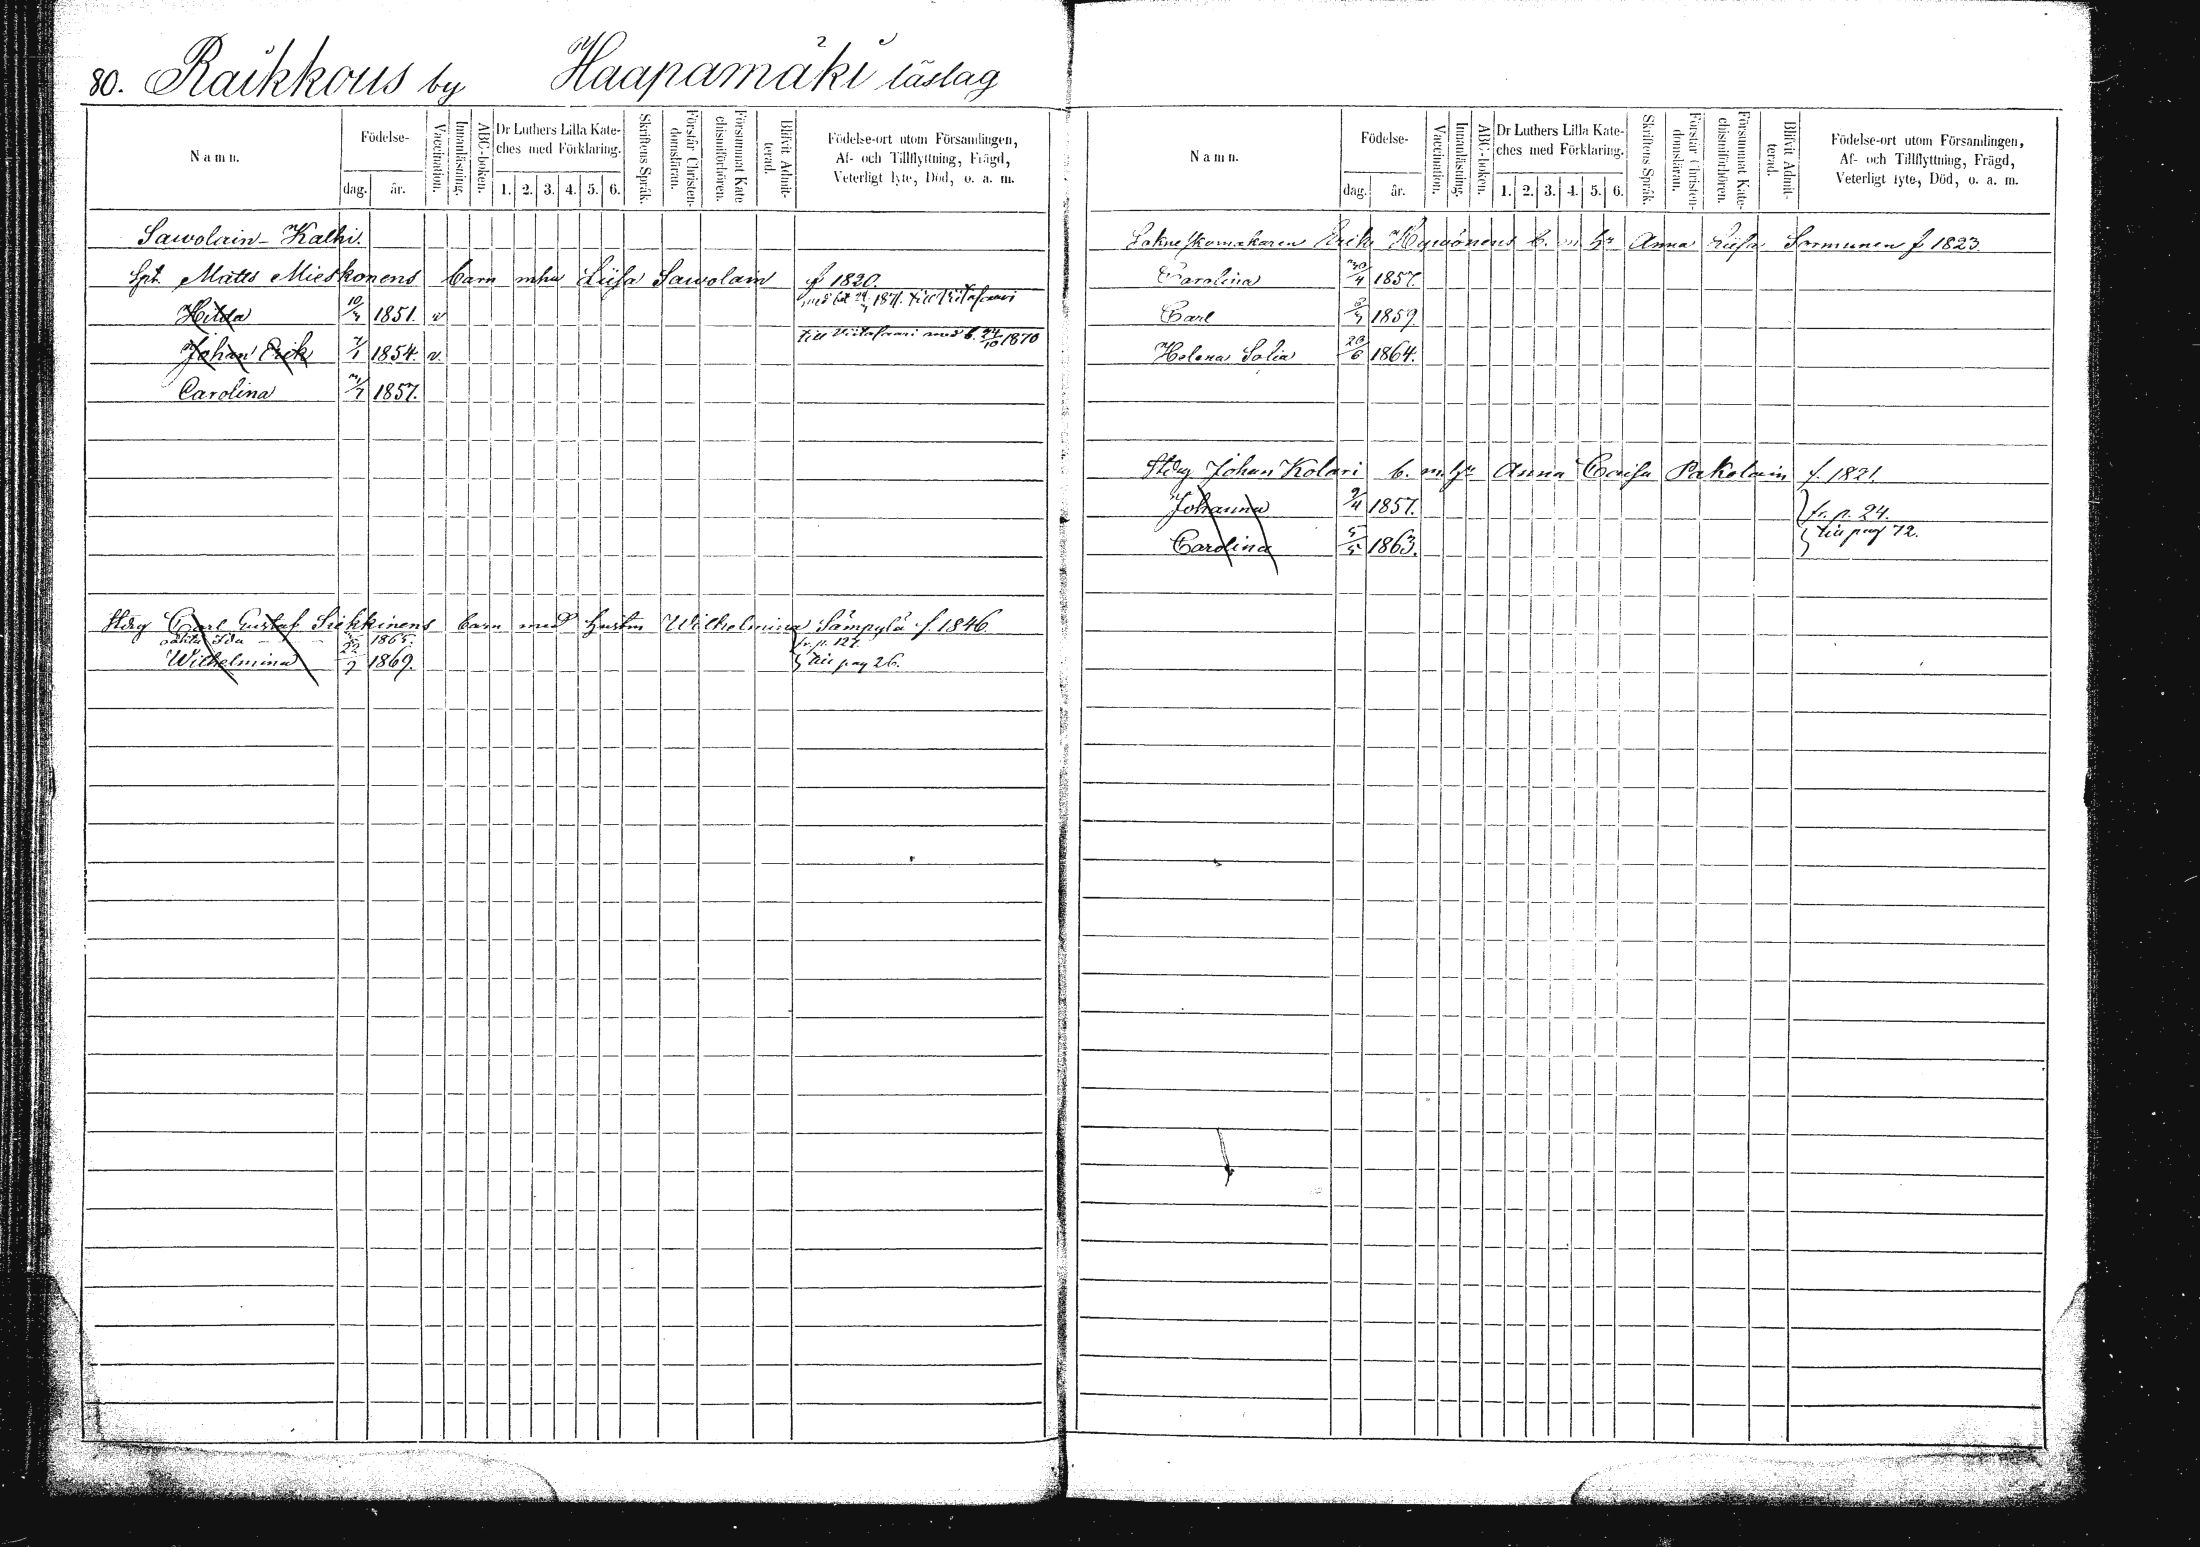 80. Räikkous by Haapamäki läslag
Namn.
Födelse-
dag. år.
Vaccination.
Innanläsning.
ABC-boken.
Dr Luthers Lilla Kate-
ches med Förklaring.
1. 2. 3. 4. 5. 6.
Skriftens Språk.
Förstår Christen-
domsläran.
Försummat Kate
chismiförhören.
Blifvit Admit-
terad.
Födelse-ort utom Församlingen,
Af- och Tillflyttning, Frägd,
Veterligt lyte, Död, o. a. m.
Sawolain- Kalhi.
Matts Mieskonens barn mhu Liisa Sawolain f 1820.
Hilda 10/ 1851. v 1871. till
Johan Erik 1854. v. till Viitasaari med b. 24/10 1870
Carolina 1857.
Carl Gustaf Siekkinens barn med hustru Wilhelmina Sämpylä f. 1846.
Ida 1865. fr. p. 127.
Wilhelmina 22/ 1869. till pag 26.
Namn.
Födelse-
dag. år.
Vaccination.
Innanläsning.
ABC-boken.
Dr Luthers Lilla Kate-
ches med Förklaring.
1. 2. 3. 4. 5. 6.
Skriftens Språk.
Förstår Christen-
domsläran.
Försummat Kate-
chismiförhören.
Blifvit Admit-
terad.
Födelse-ort utom Församlingen,
Af- och Tillflyttning, Frägd,
Veterligt lyte, Död, o. a. m.
Sokneskomakaren Erik Hywönens b. m. hu Anna Liisa Sormunen f 1823.
Carolina 30/4 1857.
Carl 1859.
Helena Sofia 20/6 1864.
Johan Kolari b. m. hu Anna Caisa Pakolain f. 1821.
Johanna 9/4 1857. fr. p. 24.
Carolina 5/5 1863. till pag 72.